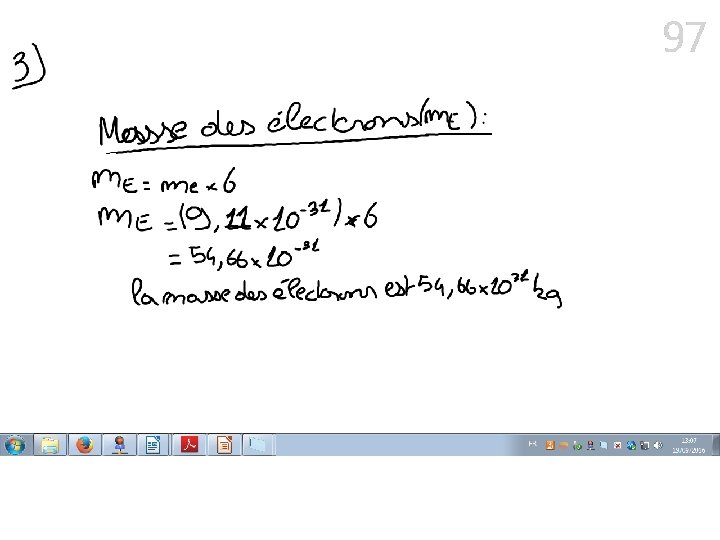 97
3)
Masse des électrons (mE) :
mE = me × 6
mE = (9,11 × 10⁻³¹) × 6
= 54,66 × 10⁻³¹
la masse des électrons est 54,66 × 10³¹ kg
FR
13:07
19/09/2016